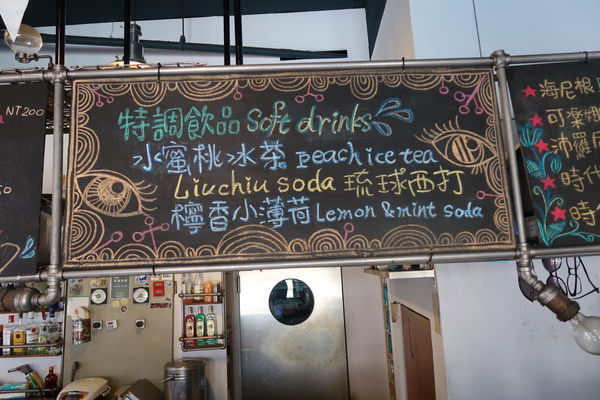 NT200
特調飲品 Soft drinks
水蜜桃冰茶 peach ice tea
Liuchiu soda 琉球西打
檸香小薄荷 Lemon & mint soda
海尼根
可樂娜
沛羅尼
時代
時代